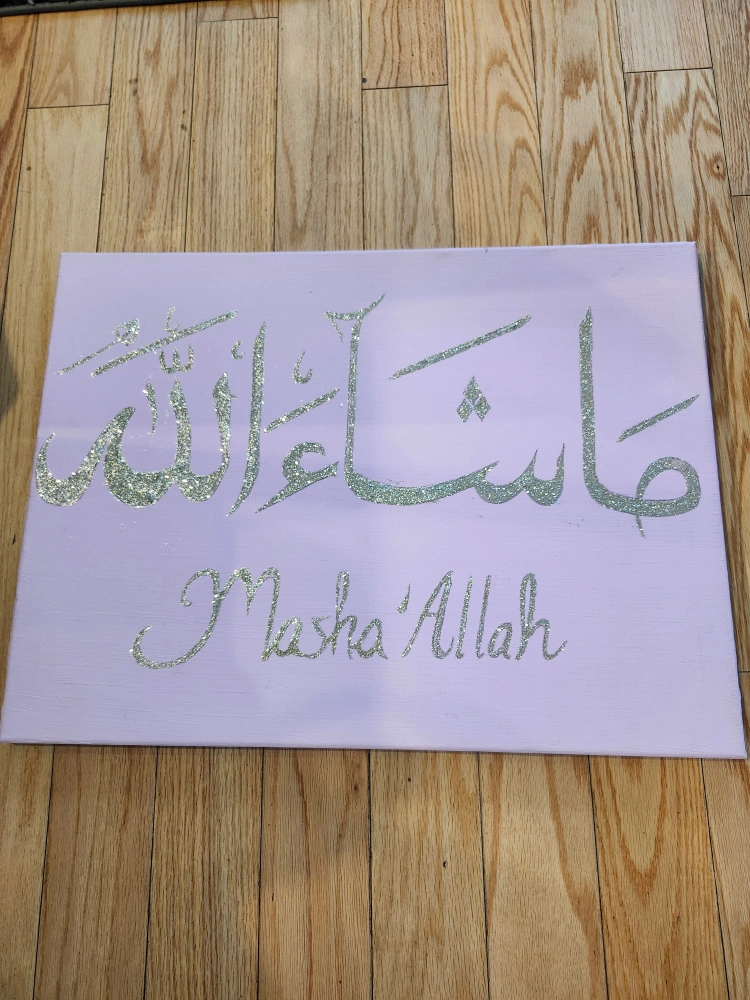 مَا شَآءَ اللّٰهُ
Masha'Allah